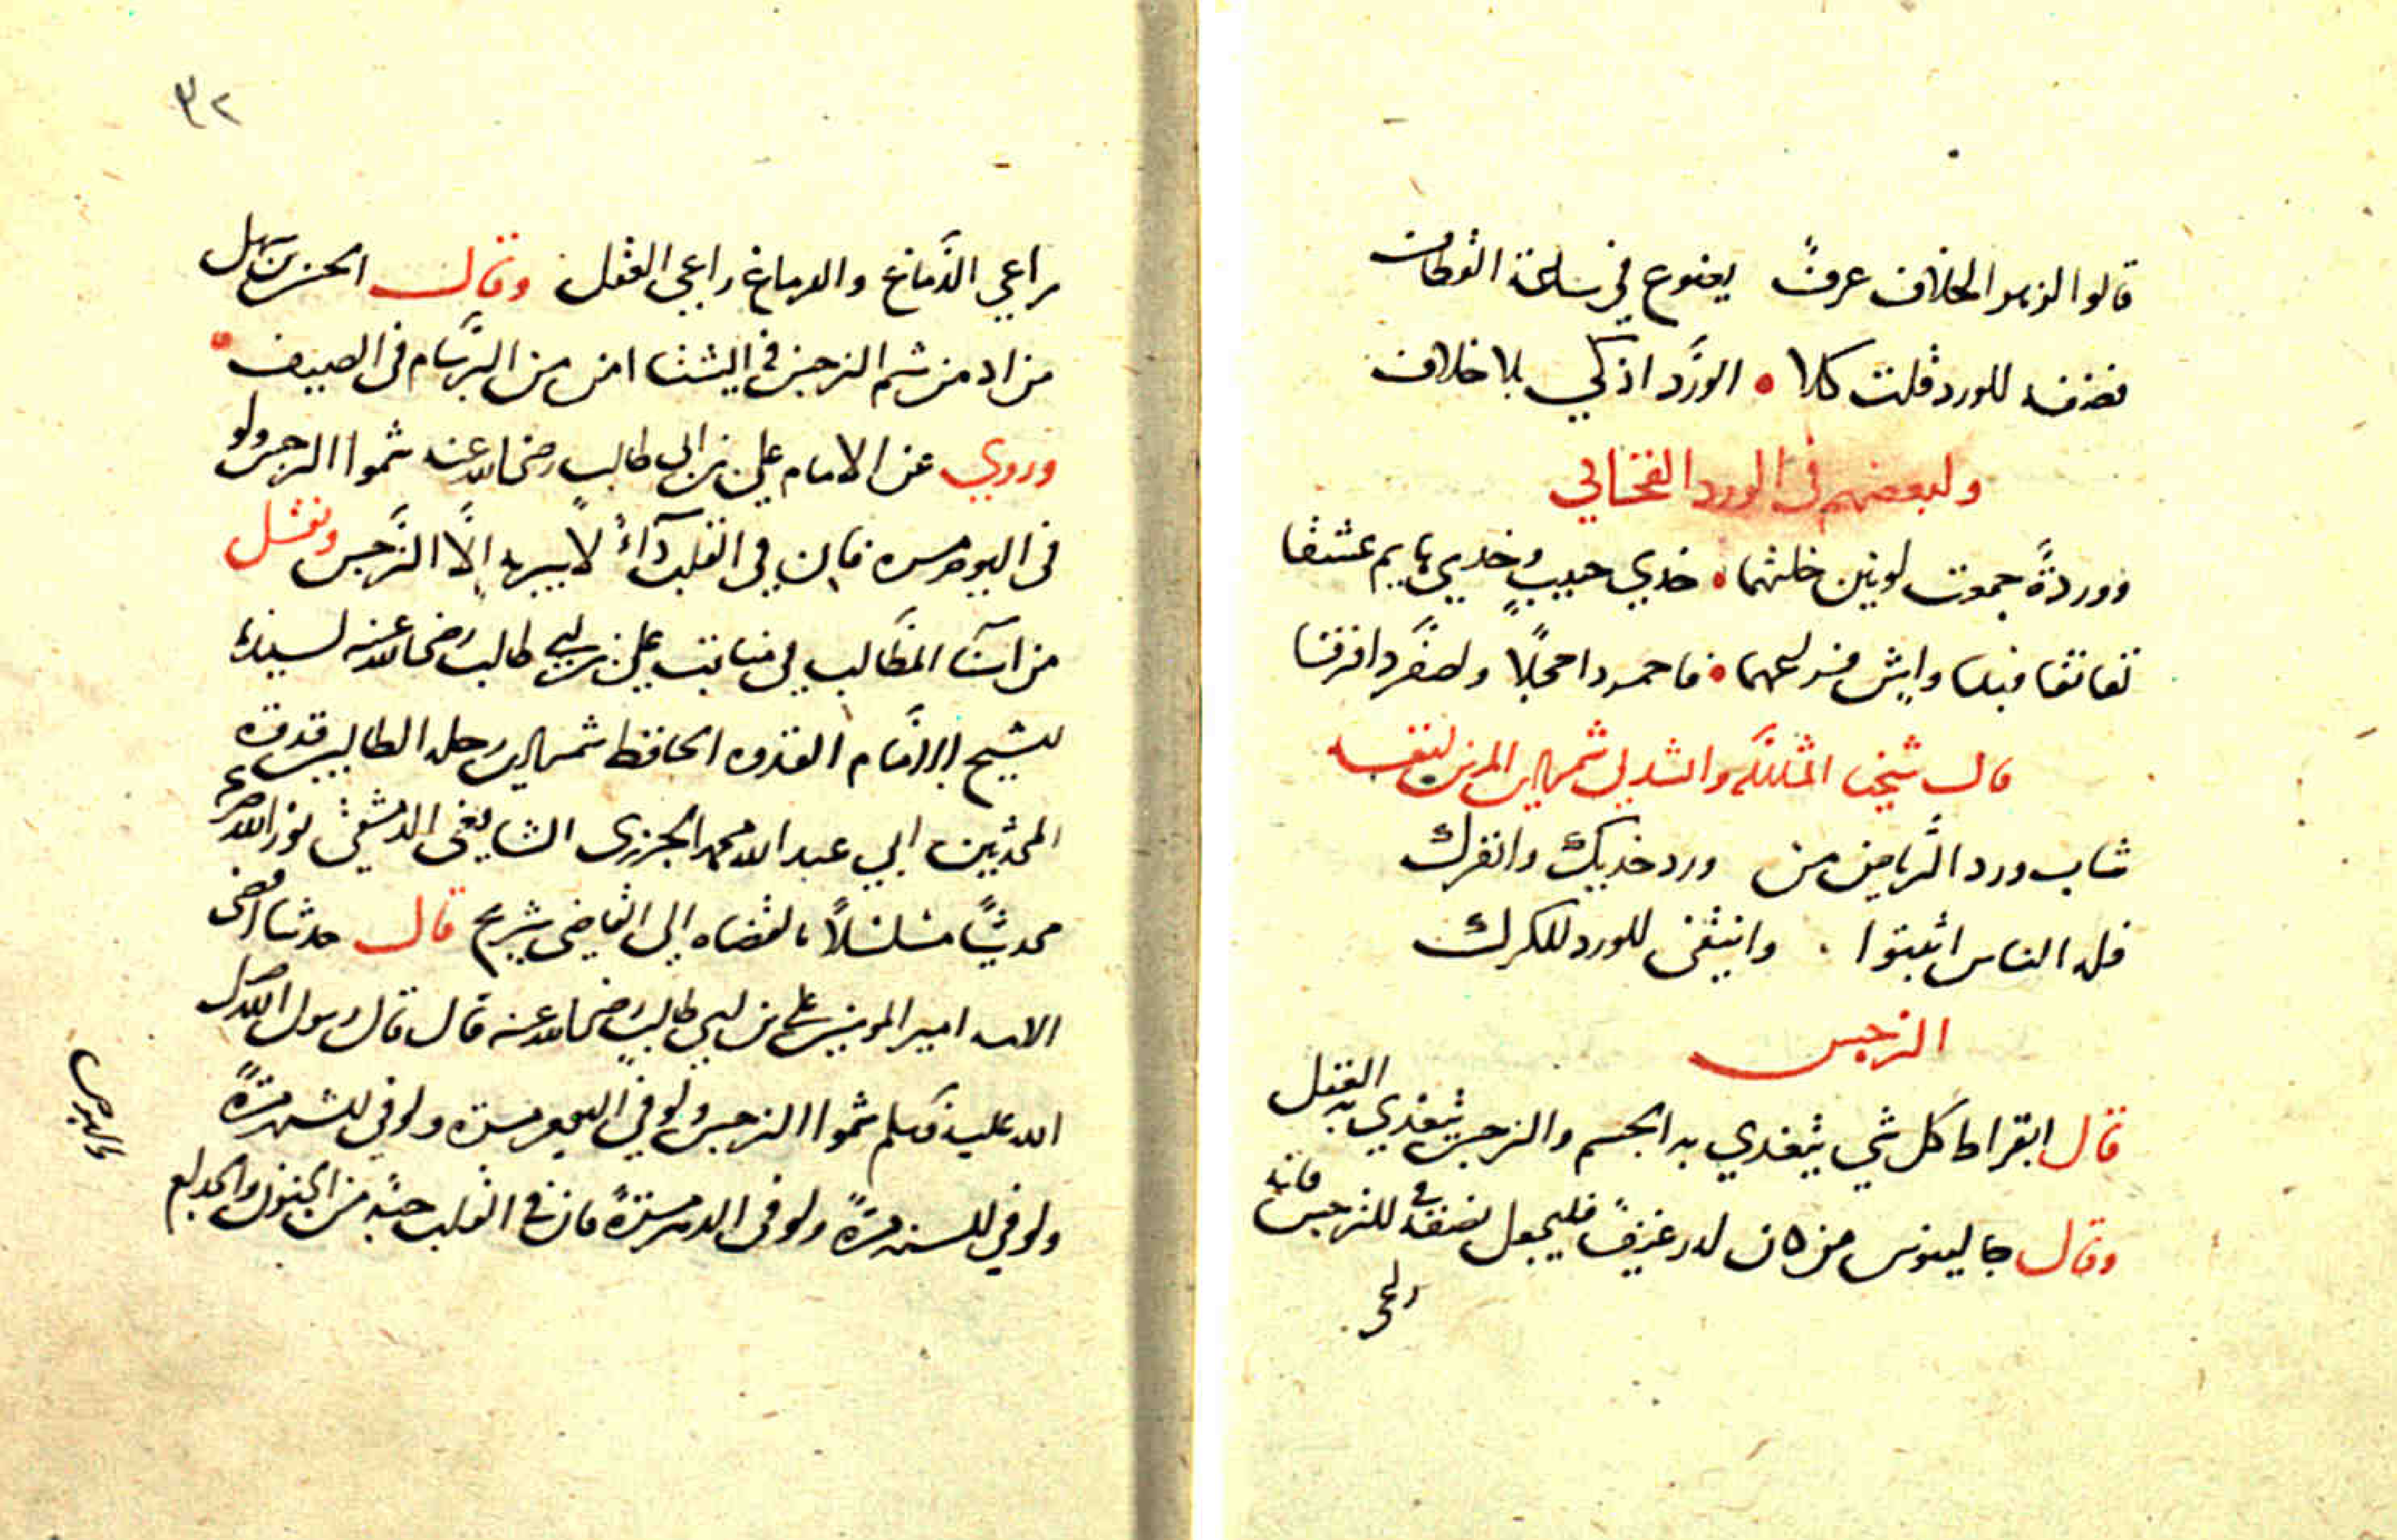 قالوا لزهر الخلاف عرف يضوع في ساعة القطاف
فضفه للورد قلت كلا • الورد اذكي بلا خلاف
ولبعضهم في الورد القحابي
ووردة جمعت لونين خلتهما • خدي حبيب وخدي هايم عشقا
تعانقا فبدا واش فراعهما • فاحمر ذا خجلا واصفر ذا فرقا
قال شيخنا شمس الدين المزين لنفسه
شاب ورد الرياض من ورد خديك وانفرك
قله الناس اثبتوا وانتفى للورد للكرك
النرجس
قال ابقراط كل شي يتغدي به الجسم والنرجس يتغدي به العقل
وقال جالينوس من كان له رغيف فليجعل نصفه في النرجس فانه
راعي
٣٢
راعي الدماغ والدماغ راعي العقل وقال الحسن بن سهل
من ادمن شم النرجس في الشتا امن من البرسام في الصيف
وروي عن الامام علي بن ابي طالب رضي الله عنه شموا النرجس ولو
في اليوم مرة فان في القلب داء لا يبريه الا النرجس ونقل
من اسنا المطالب في مناقب علي بن ابي طالب رضي الله عنه لسيدنا
الشيخ الامام القدوه الحافظ شمس الدين رحلة الطالبين قدوة
المحدثين ابي عبد الله محمد الجزري الشافعي الدمشقي نور الله ضريحه
حديثا مسلسلا بالقضاه الي القاضي شريح قال حدثنا اقضى
الامه امير المومنين علي بن ابي طالب رضي الله عنه قال قال رسول الله صلى
الله عليه وسلم شموا النرجس ولو في اليوم مرة ولو في الشهر مرة
ولو في السنه مرة ولو في الدهر مرة فان في القلب حبه من الجنون والجدام
والبرص